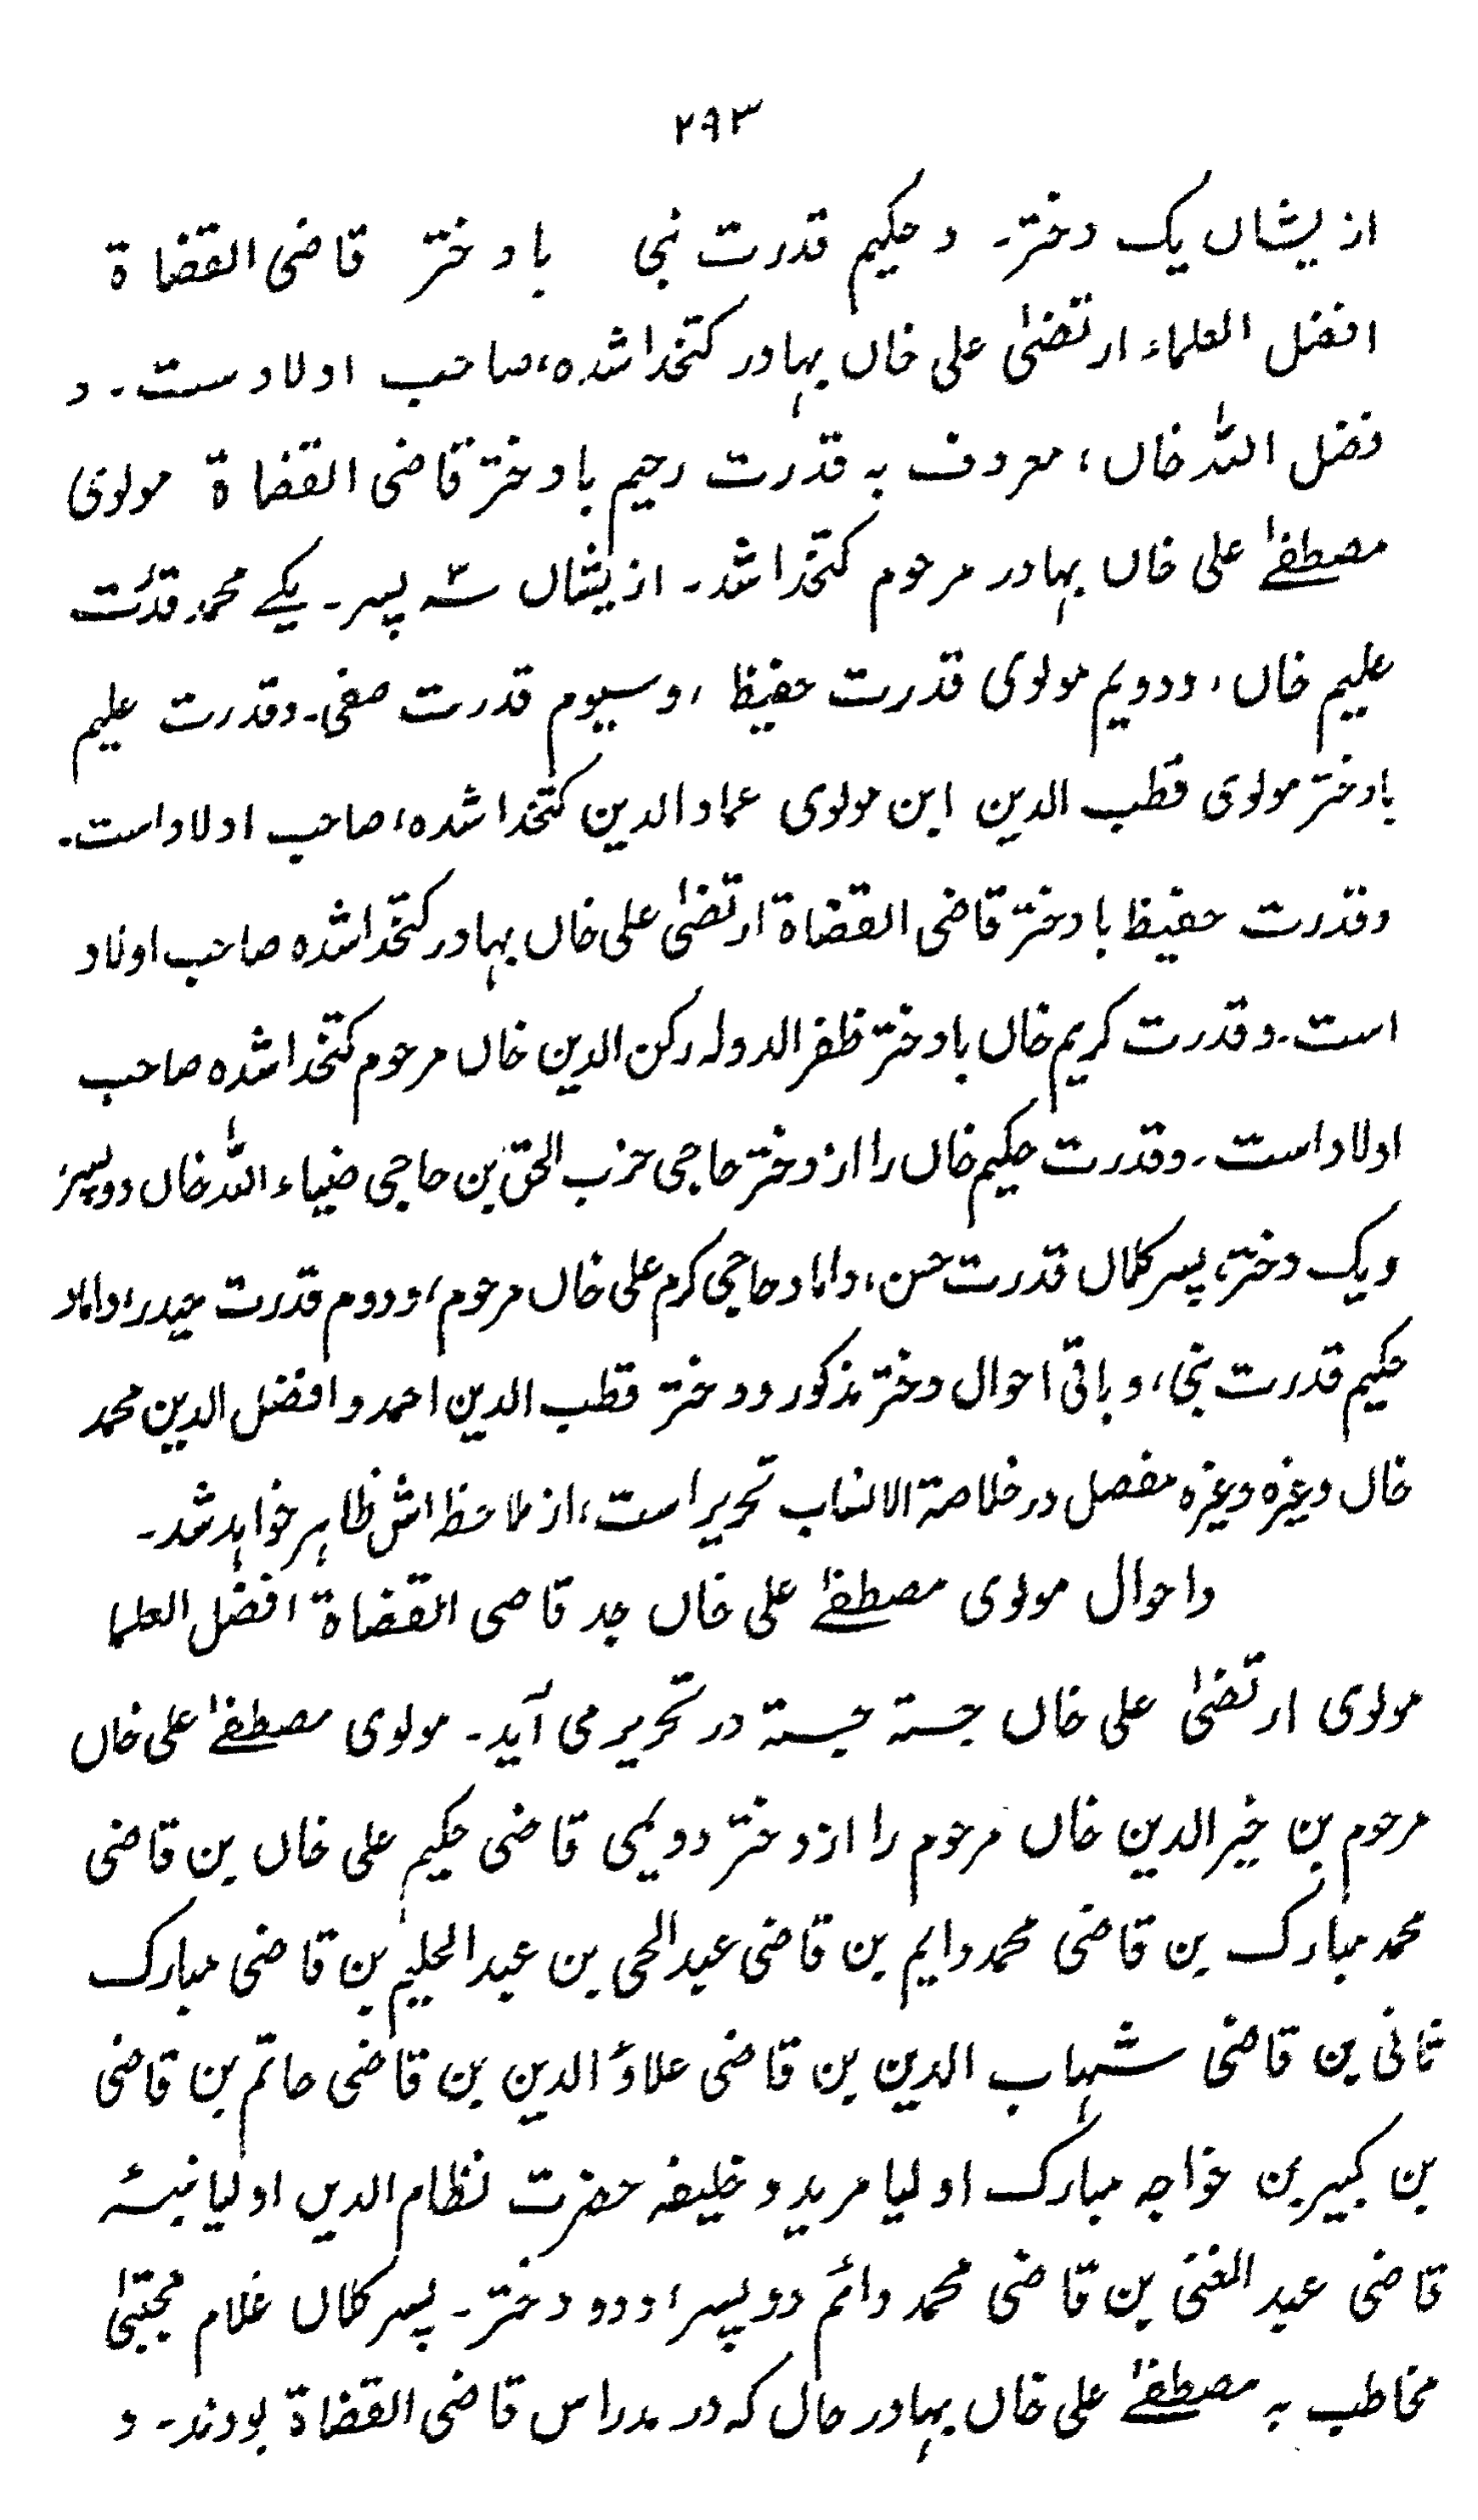 ۲۹۳
ازیشاں یک دختر۔ و حکیم قدرت نبی با دختر قاضی القضاة
افضل العلماء ارتضیٰ علی خاں بہادر کتخدا شدہ، صاحب اولادست۔ و
فضل اللہ خاں، معروف بہ قدرت رحیم با دختر قاضی القضاة مولوی
مصطفےٰ علی خاں بہادر مرحوم کتخدا شد۔ ازیشاں سہ پسر۔ یکے محمد قدرت
علیم خاں، و دویم مولوی قدرت حفیظ، و سیوم قدرت صفی۔ و قدرت علیم
با دختر مولوی قطب الدین ابن مولوی عماد الدین کتخدا شدہ، صاحب اولاد است۔
و قدرت حفیظ با دختر قاضی القضاة ارتضیٰ علی خاں بہادر کتخدا شدہ صاحب اولاد
است۔ و قدرت کریم خاں با دختر ظفر الدولہ رکن الدین خاں مرحوم کتخدا شدہ صاحب
اولاد است۔ و قدرت حکیم خاں را از دختر حاجی حزب الحق بن حاجی ضیاء اللہ خاں دو پسر
و یک دختر، پسر کلاں قدرت حسن، داماد حاجی کرم علی خاں مرحوم، و دوم قدرت حیدر، داماد
حکیم قدرت نبی، و باقی احوال دختر مذکور و دختر قطب الدین احمد و افضل الدین محمد
خاں وغیرہ وغیرہ مفصل در خلاصۃ الانساب تحریر است، از ملاحظہ اش ظاہر خواہد شد۔
و احوال مولوی مصطفےٰ علی خاں جد قاضی القضاة افضل العلما
مولوی ارتضیٰ علی خاں جستہ جستہ در تحریر می آید۔ مولوی مصطفےٰ علی خاں
مرحوم بن خیر الدین خاں مرحوم را از دختر دویمی قاضی حکیم علی خاں بن قاضی
محمد مبارک بن قاضی محمد دایم بن قاضی عبد الحی بن عبد الحلیم بن قاضی مبارک
ثانی بن قاضی شہاب الدین بن قاضی علاؤ الدین بن قاضی حاتم بن قاضی
بن کبیر بن خواجہ مبارک اولیا مرید و خلیفہ حضرت نظام الدین اولیا نبسۂ
قاضی عبد الغنی بن قاضی محمد دائم دو پسر، و دو دختر۔ پسر کلاں غلام مجتبیٰ
مخاطب بہ مصطفےٰ علی خاں بہادر حال کہ در مدراس قاضی القضاة بودند۔ و